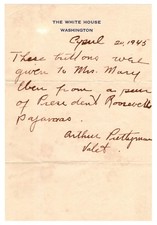 THE WHITE HOUSE
WASHINGTON
April 20, 1945
These buttons were
given to Mrs. Mary
Eben from a pair
of President Roosevelt
pajamas.
Arthur Prettyman
Valet.